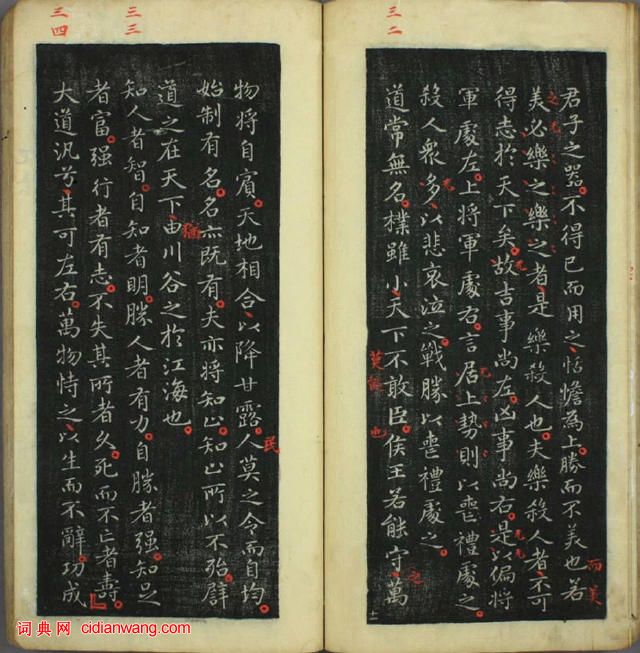 三二
君子之器。不得已而用之、恬憺為上。勝而不美也若
而美
美必樂之樂之者、是樂殺人也。夫樂殺人者、不可
得志於天下矣。故吉事尚左。凶事尚右。是以偏將
軍處左。上將軍處右。言居上勢則以喪禮處之
殺人衆多、以悲哀泣之。戰勝以喪禮處之。
道常無名。樸雖小、天下不敢臣。侯王若能守、萬
之
也
十二
三三
三四
物將自賓。天地相合、以降甘露。人莫之令而自均。
民
始制有名。名亦既有。夫亦將知止。知止所以不殆。譬
道之在天下、由川谷之於江海也。
猶
知人者智。自知者明。勝人者有力。自勝者強。知足
者富。強行者有志。不失其所者久。死而不亡者壽。
大道汎兮、其可左右。萬物恃之、以生而不辭。功成
词典网 cidianwang.com